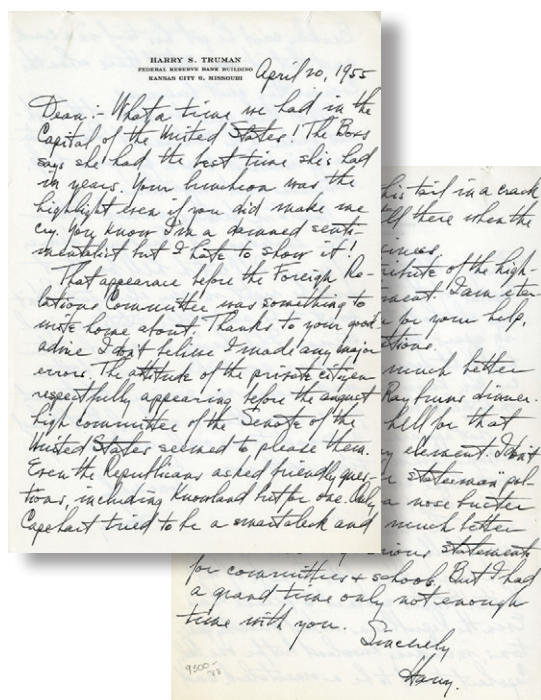 HARRY S. TRUMAN
FEDERAL RESERVE BANK BUILDING
KANSAS CITY 6, MISSOURI
April 20, 1955
Dean:- What a time we had in the
Capital of the United States! The Boss
says she had the best time she's had
in years. Your luncheon was the
highlight even if you did make me
cry. You know I'm a damned senti-
mentalist but I hate to show it!
That appearance before the Foreign Re-
lations Committee was something to
write home about. Thanks to your good
advice I don't believe I made any major
errors. The attitude of the private citizen
respectfully appearing before the august
high committee of the Senate of the
United States seemed to please them.
Even the Republicans asked friendly ques-
tions, including Knowland but for one. Only
Capehart tried to be a smart aleck and
his tail in a crack
there when the
tribute of the high-
ment. I am eter-
for your help,
much better
Rayburns dinner.
hell for that
element. I don't
statesman" pol-
a nose buster
much better
statements
for committees & schools. But I had
a grand time only not enough
time with you.
Sincerely
Harry.
9500-